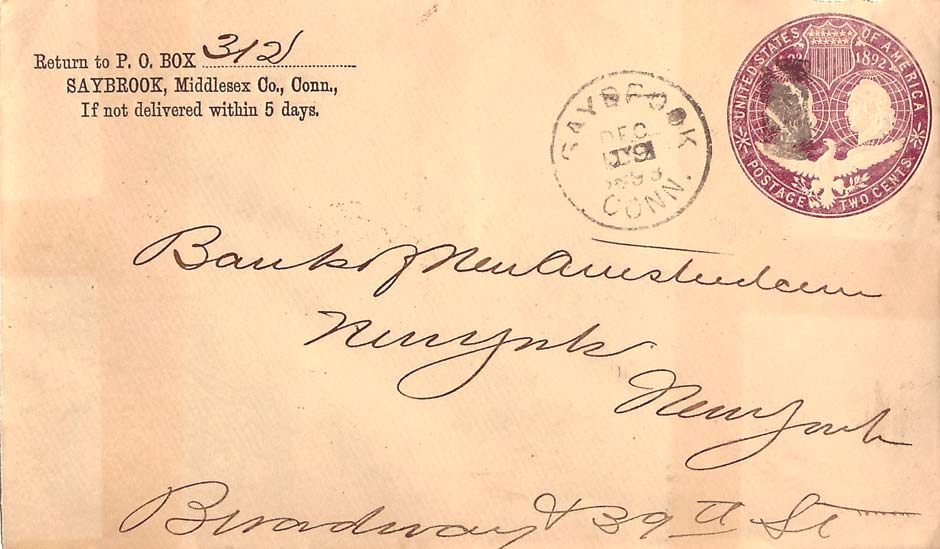 Return to P. O. BOX 312
SAYBROOK, Middlesex Co., Conn.,
If not delivered within 5 days.
SAYBROOK
DEC
19
1893
CONN.
UNITED STATES OF AMERICA
1892
POSTAGE TWO CENTS.
Bank of New Amsterdam
New York
New York
Broadway & 39th St